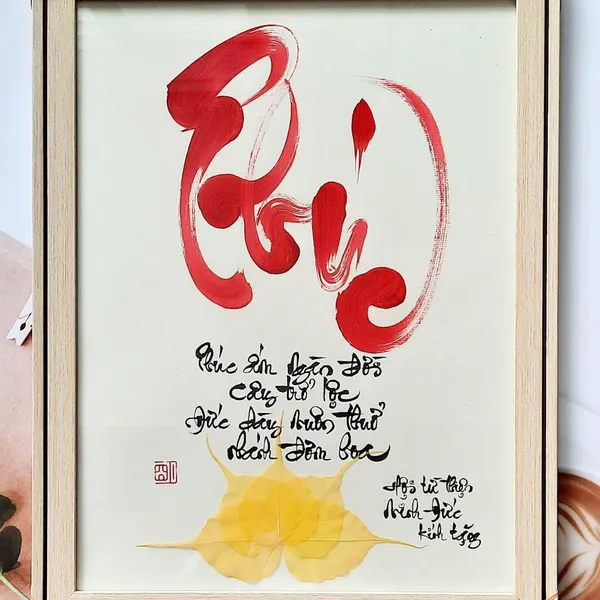 Phúc
Phúc ấm ngàn đời
cây trổ lộc
Đức dày muôn thuở
nhánh đơm hoa
Học từ thiện
Minh Đức
kính tặng